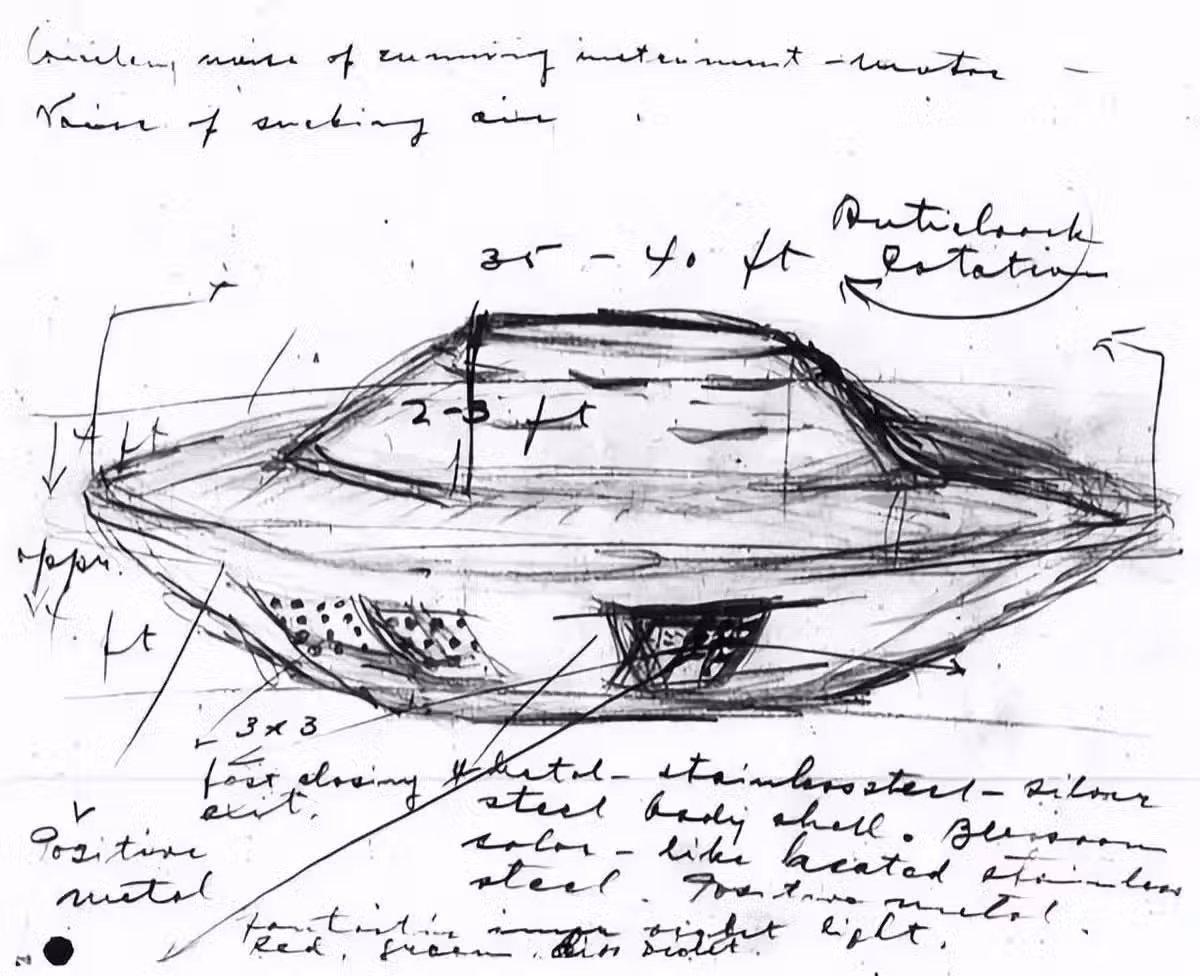 noise of running instrument - motor -
Noise of sucking air
35 - 40 ft
Anticlock
Rotation
2-3 ft
4 ft
appr.
4 ft
3 x 3
fast closing
exit.
Positive
metal
Metal - stainless steel - silver
steel body shell.
color - like heated stainless
steel. Positive metal
inner violet light.
Red, green violet.